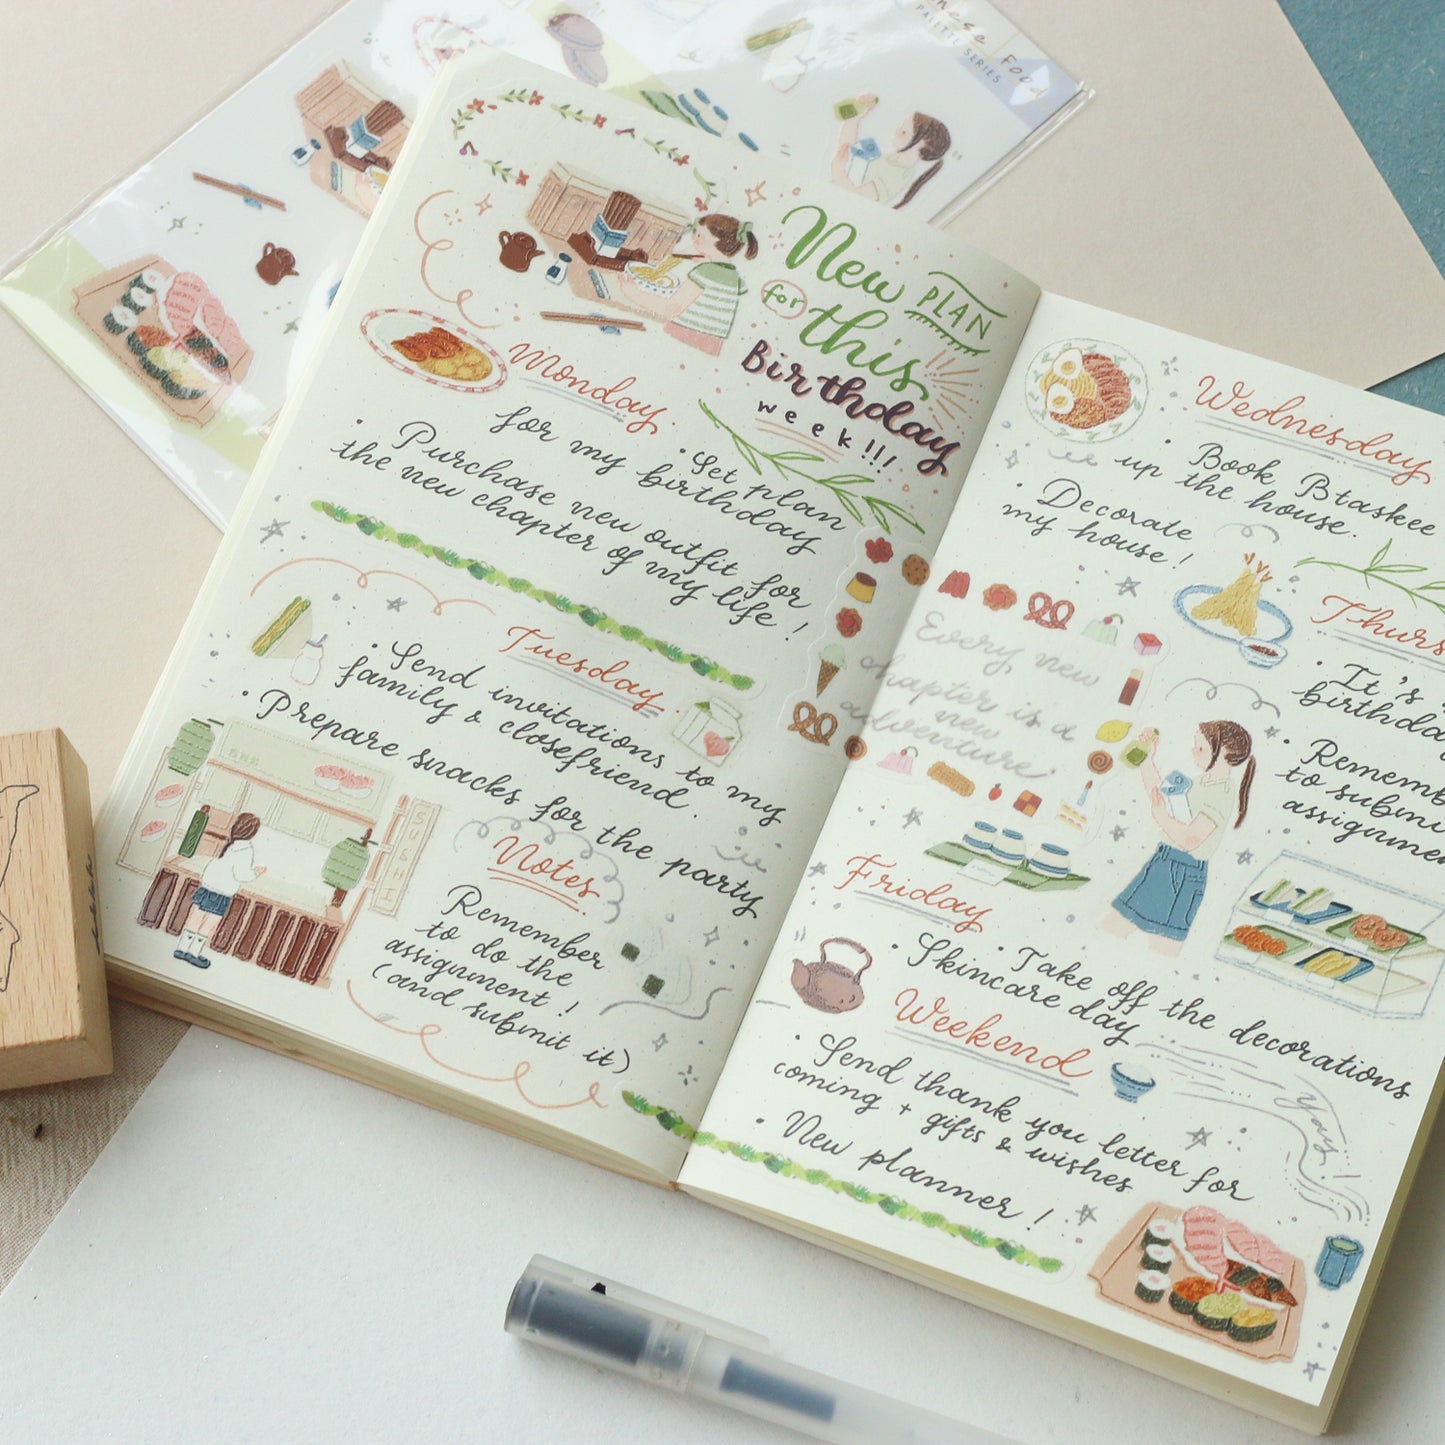 nese Food
PALETTE SERIES
New PLAN
for this
Birthday
week!!!
Monday
• Set plan
for my birthday
• Purchase new outfit for
the new chapter of my life!
Tuesday
• Send invitations to my
family & closefriend.
• Prepare snacks for the party
SUSHI
Notes
Remember
to do the
assignment!
(and submit it)
Wednesday
• Book Btaskee
up the house.
• Decorate
my house!
Every new
chapter is a
new
adventure
Thurs
• It's
birthday
• Rememb
to submi
assignmen
Friday
• Take off the decorations
• Skincare day
Weekend
• Send thank you letter for
coming + gifts & wishes
• New planner!
Yay!